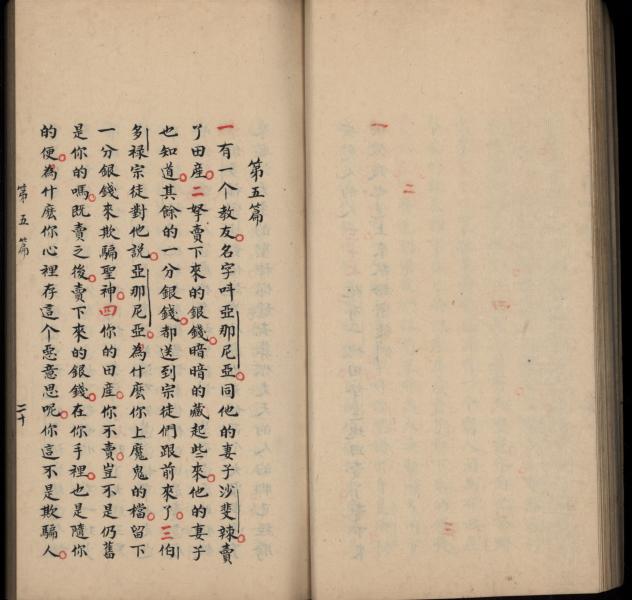 第五篇
一有一个教友名字呌亞那尼亞同他的妻子沙斐辣賣
了田産二孥賣下來的銀錢暗暗的藏起些來他的妻子
也知道其餘的一分銀錢都送到宗徒們跟前來了三伯
多禄宗徒對他說亞那尼亞為什麽你上魔鬼的檔留下
一分銀錢來欺騙聖神四你的田産你不賣豈不是仍舊
是你的嗎既賣之後賣下來的銀錢在你手裡也是隨你
的便為什麽你心裡存這个惡意思呢你這不是欺騙人
第五篇
二十